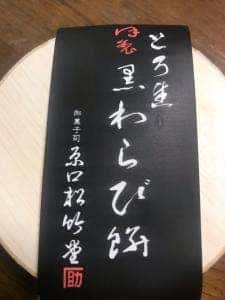 とろ生
特製
黒わらび餅
御菓子司
原口松竹堂
助